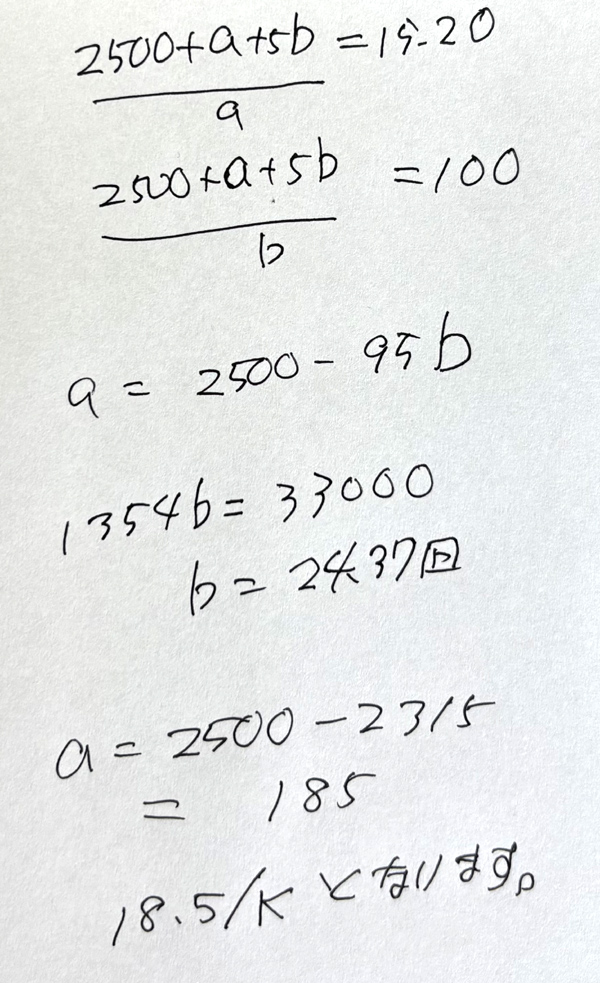 2500+a+5b = 15.20
a
2500+a+5b = 100
b
a = 2500 - 95b
1354b = 33000
b = 24.37回
a = 2500 - 2315
= 185
18.5/K となります。